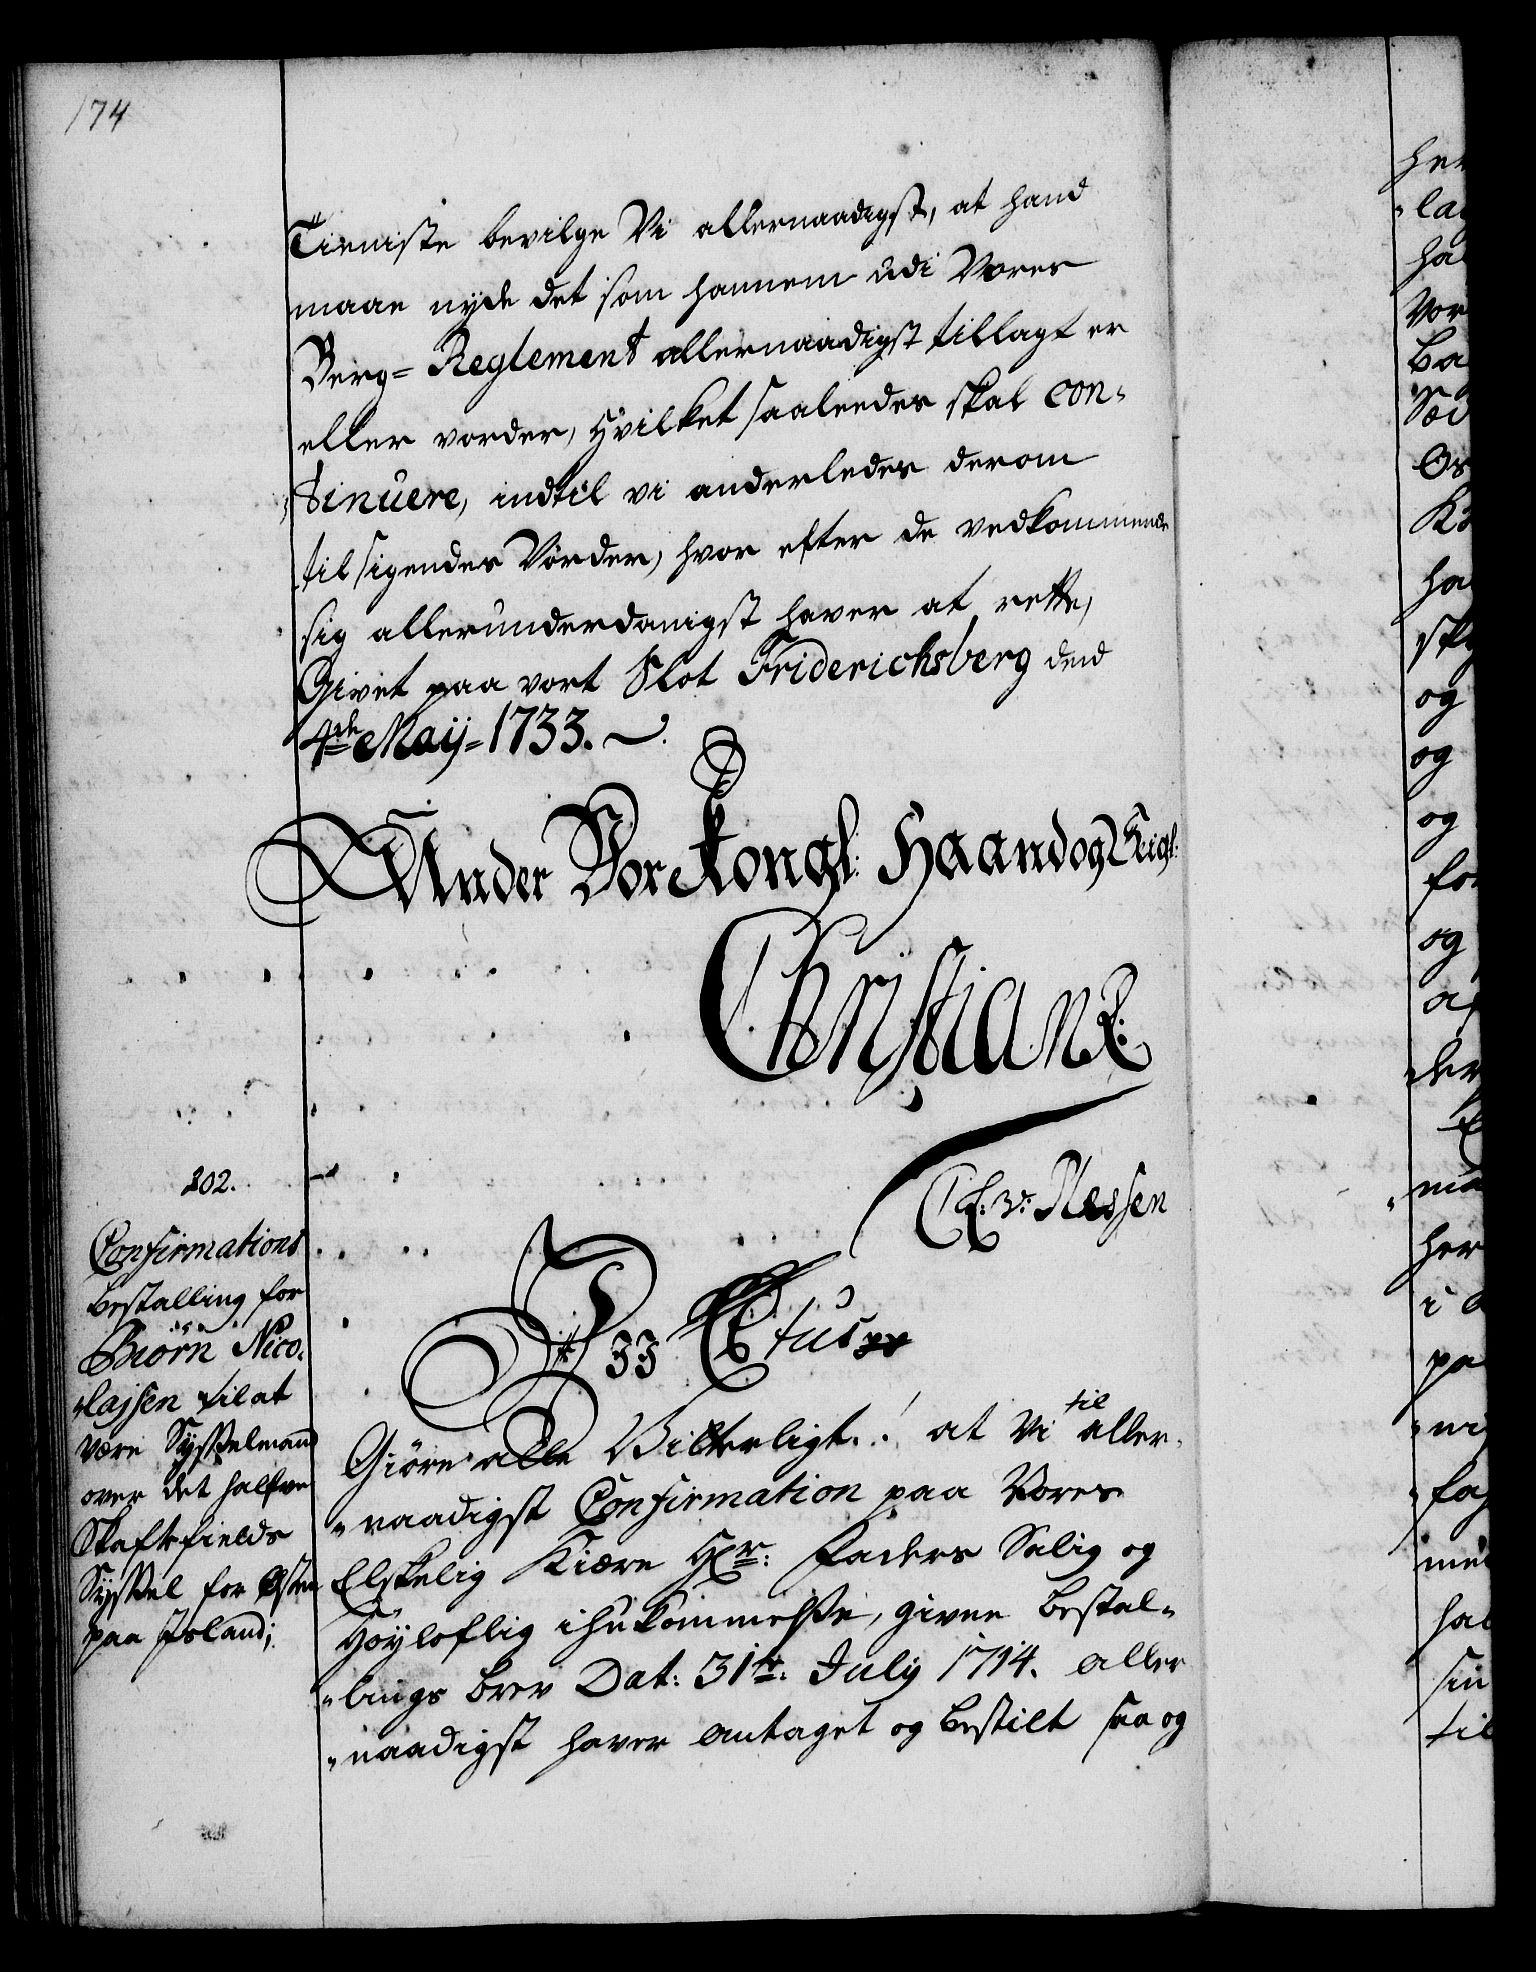 174
Tieniste bevilge Vi allernaadigst, at hand
maae nyde det som hannem udi Vores
Berg= Reglement allernaadigst tillagt er
eller vorder, Hvilket saaleedes skal con-
tinuere, indtil vi anderledes derom
tilsigendes Vorder, hvor efter de vedkommende
sig allerunderdanigst haver at rette,
Givet paa vort Slot Friderichsberg dend
4de Maij=1733.
Under Vor Kongl: Haand og Seigl:
Christian R:
C A: v: Plessen
202.
Confirmations
bestalling for
Biørn Nico-
lajsen til at
være Sysselmand
over det halfve
Skaftefields
Syssel for Østen
paa Island;
Titus
Giøre alle Vitterligt: at Vi til aller-
naadigst Confirmation paa Vores
Elskelig Kiære Hr: Faders Salig og
Høyloflig ihukommelse, givne bestal-
lings brev Dat: 31te July 1714. aller
naadigst haver antaget og bestilt saa og